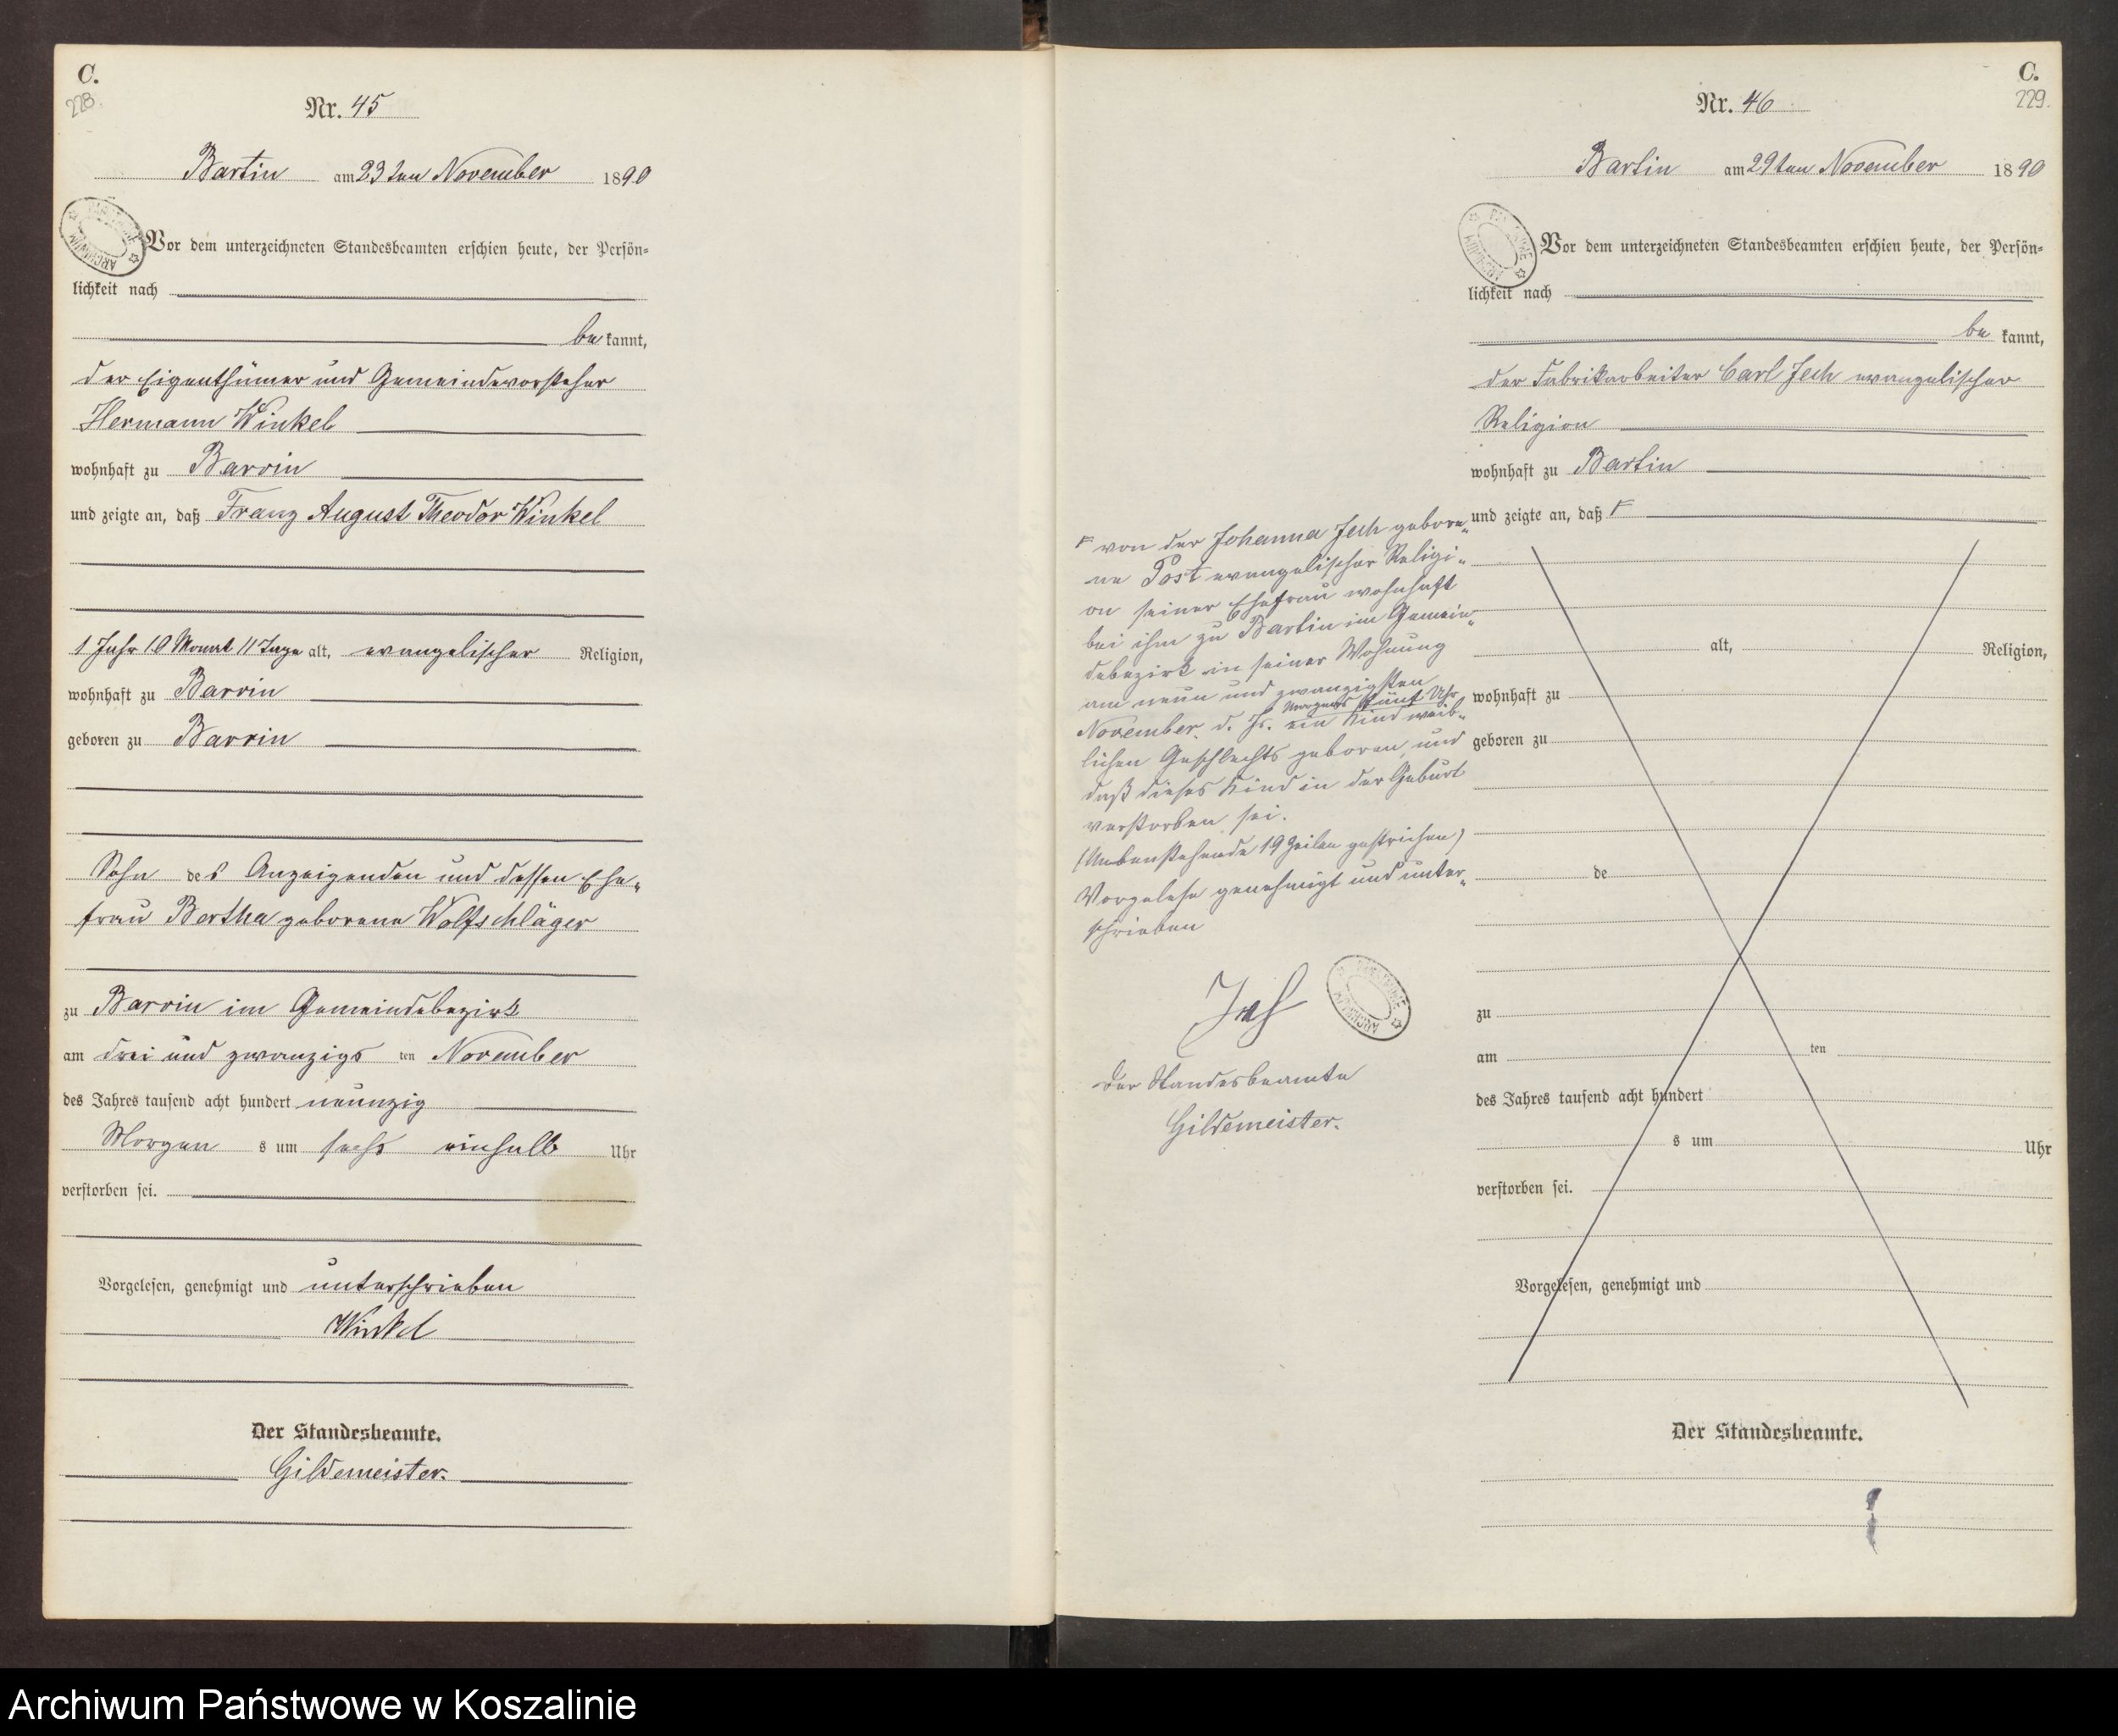 C.
228.
Nr. 45
Bartin am 23ten November 1890
Vor dem unterzeichneten Standesbeamten erschien heute, der Persön=
lichkeit nach
be kannt,
der Eigenthümer und Gemeindevorsteher
Hermann Winkel
wohnhaft zu Barvin
und zeigte an, daß Franz August Theodor Winkel
1 Jahr 10 Monat 11 Tage alt, evangelischer Religion,
wohnhaft zu Barvin
geboren zu Barvin
Sohn des Anzeigenden und dessen Ehe„
frau Bertha geborene Wolfschläger
zu Barvin im Gemeindebezirk
am drei und zwanzigs ten November
des Jahres tausend acht hundert neunzig
Morgen s um sechs einhalb Uhr
verstorben sei.
Vorgelesen, genehmigt und unterschrieben
Winkel
Der Standesbeamte.
Gildemeister.
C.
229.
Nr. 46
Bartin am 29ten November 1890
Vor dem unterzeichneten Standesbeamten erschien heute, der Persön=
lichkeit nach
be kannt,
der Fabrikarbeiter Carl Jech evangelischer
Religion
wohnhaft zu Bartin
und zeigte an, daß
alt, Religion,
wohnhaft zu
geboren zu
de
zu
am ten
des Jahres tausend acht hundert
s um Uhr
verstorben sei.
Vorgelesen, genehmigt und
Der Standesbeamte.
von der Johanna Jech gebore„
ne Post evangelischer Religi„
on seiner Ehefrau wohnhaft
bei ihm zu Bartin im Gemein„
debezirk in seiner Wohnung
am neun und zwanzigsten
Morgens fünf Uhr
November d. Js. ein Kind weib„
lichen Geschlechts geboren und
daß dieses Kind in der Geburt
verstorben sei.
(Nebenstehende 19 Zeilen gestrichen)
Vorgelese genehmigt und unter„
schrieben
Der Standesbeamte
Gildemeister.
Archiwum Państwowe w Koszalinie